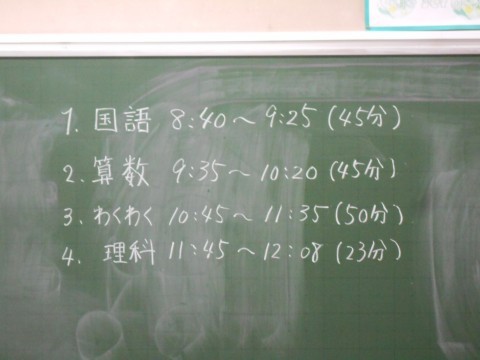 1. 国語 8:40〜9:25 (45分)
2. 算数 9:35〜10:20 (45分)
3. わくわく 10:45〜11:35 (50分)
4. 理科 11:45〜12:08 (23分)